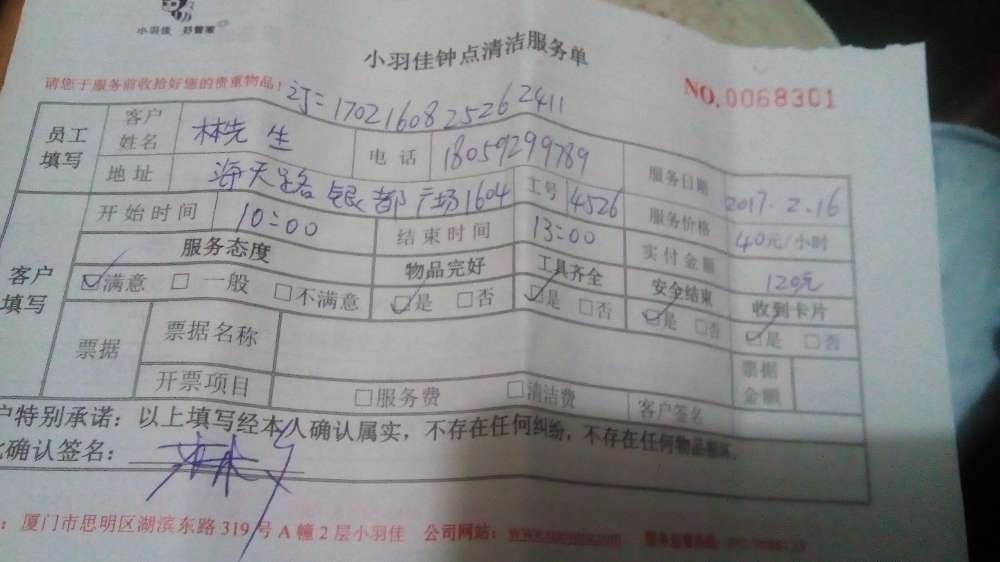 小羽佳 好管家
小羽佳钟点清洁服务单
请您于服务前收拾好您的贵重物品!
NO.0068301
订=1702160825262411
员工填写 客户姓名 林先生 电话 18059299789 服务日期 2017.2.16
地址 海天路银都广场1604 工号 4526 服务价格 40元/小时
客户填写 开始时间 10:00 结束时间 13:00 实付金额 120元
服务态度 物品完好 工具齐全 安全结束 收到卡片
☑满意 □一般 □不满意 ☑是 □否 ☑是 □否 ☑是 □否 ☑是 □否
票据 票据名称 票据金额
开票项目 □服务费 □清洁费 客户签名
户特别承诺:以上填写经本人确认属实,不存在任何纠纷,不存在任何物品损坏。
确认签名:
:厦门市思明区湖滨东路319号A幢2层小羽佳 公司网站: